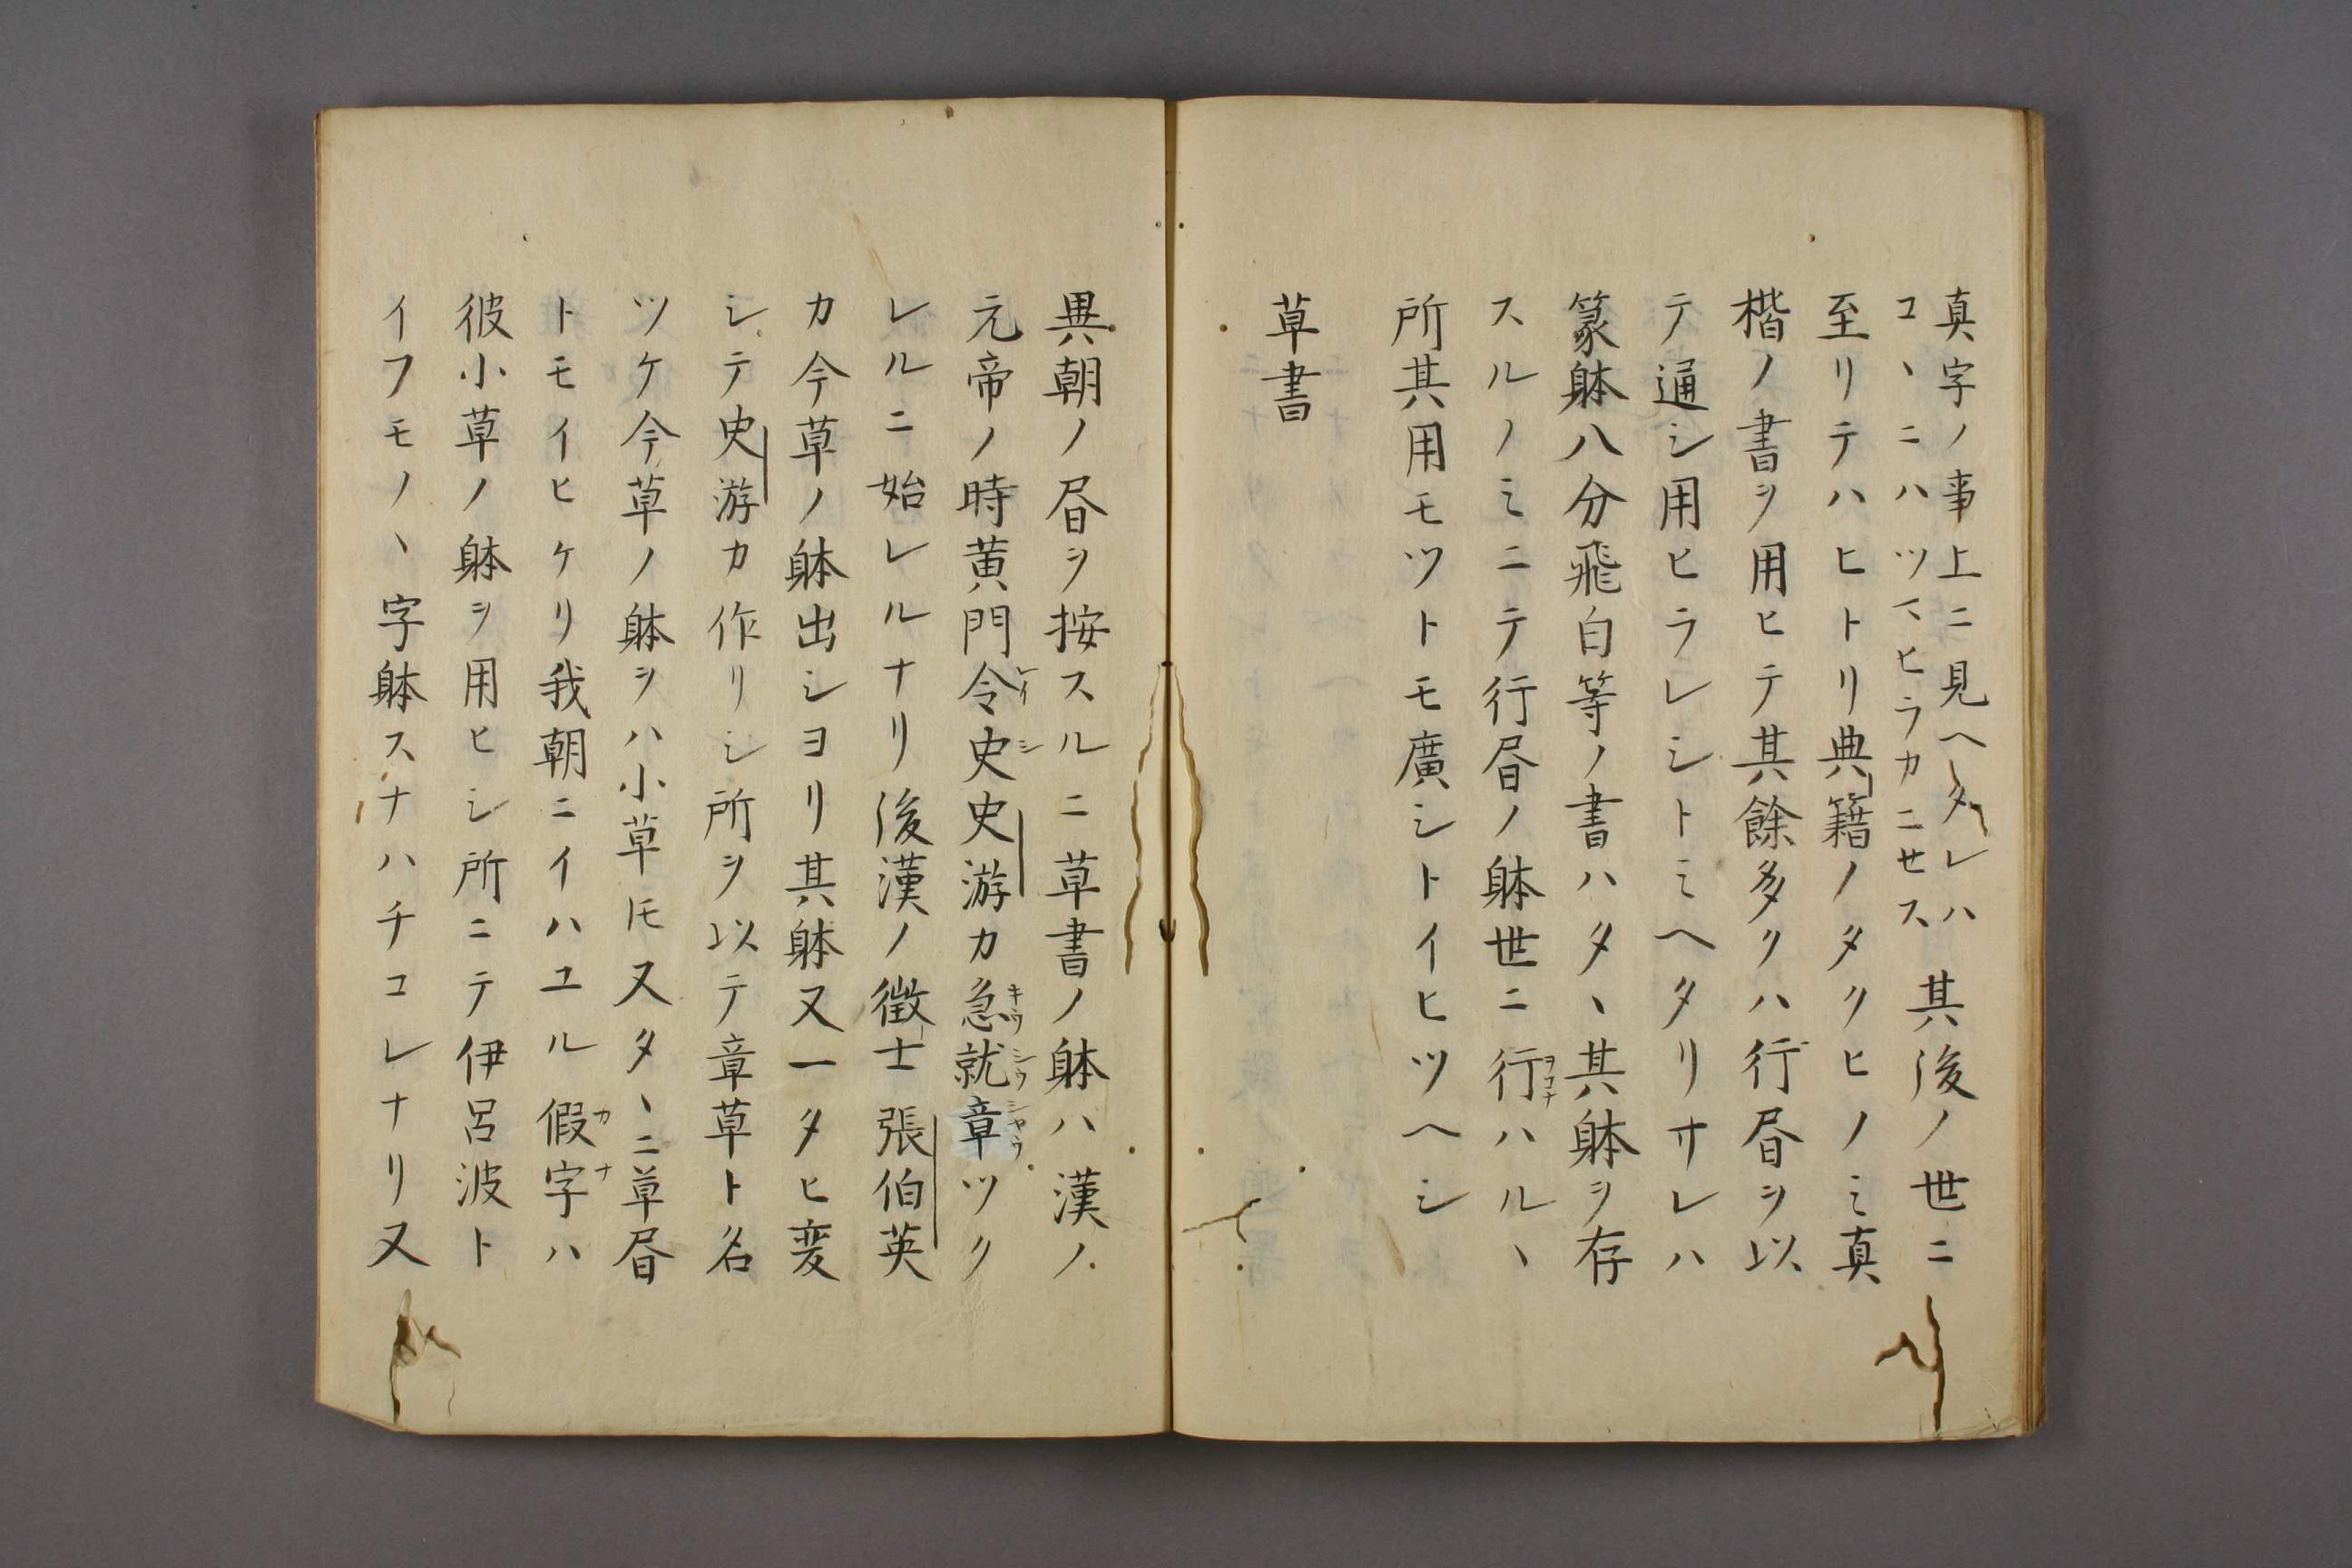 真字ノ事上ニ見ヘタレハ
コヽニハツマヒラカニせス
其後ノ世ニ
至リテハヒトリ典籍ノタクヒノミ真
楷ノ書ヲ用ヒテ其餘多クハ行昼ヲ以
テ通シ用ヒラレシトミヘタリサレハ
篆躰八分飛白等ノ書ハタヽ其躰ヲ存
スルノミニテ行昼ノ躰世ニ行ハルヽ
ヲコナ
所其用モツトモ廣シトイヒツヘシ
草書
異朝ノ昼ヲ按スルニ草書ノ躰ハ漢ノ
元帝ノ時黄門令史史游カ急就章ツク
レイシ
キウシウシヤウ
レルニ始レルナリ後漢ノ徴士張伯英
カ今草ノ躰出シヨリ其躰又一タヒ変
シテ史游カ作リシ所ヲ以テ章草ト名
ツケ今草ノ躰ヲハ小草トモ又タヽニ草昼
トモイヒケリ我朝ニイハユル假字ハ
カナ
彼小草ノ躰ヲ用ヒシ所ニテ伊呂波ト
イフモノヽ字躰スナハチコレナリ又